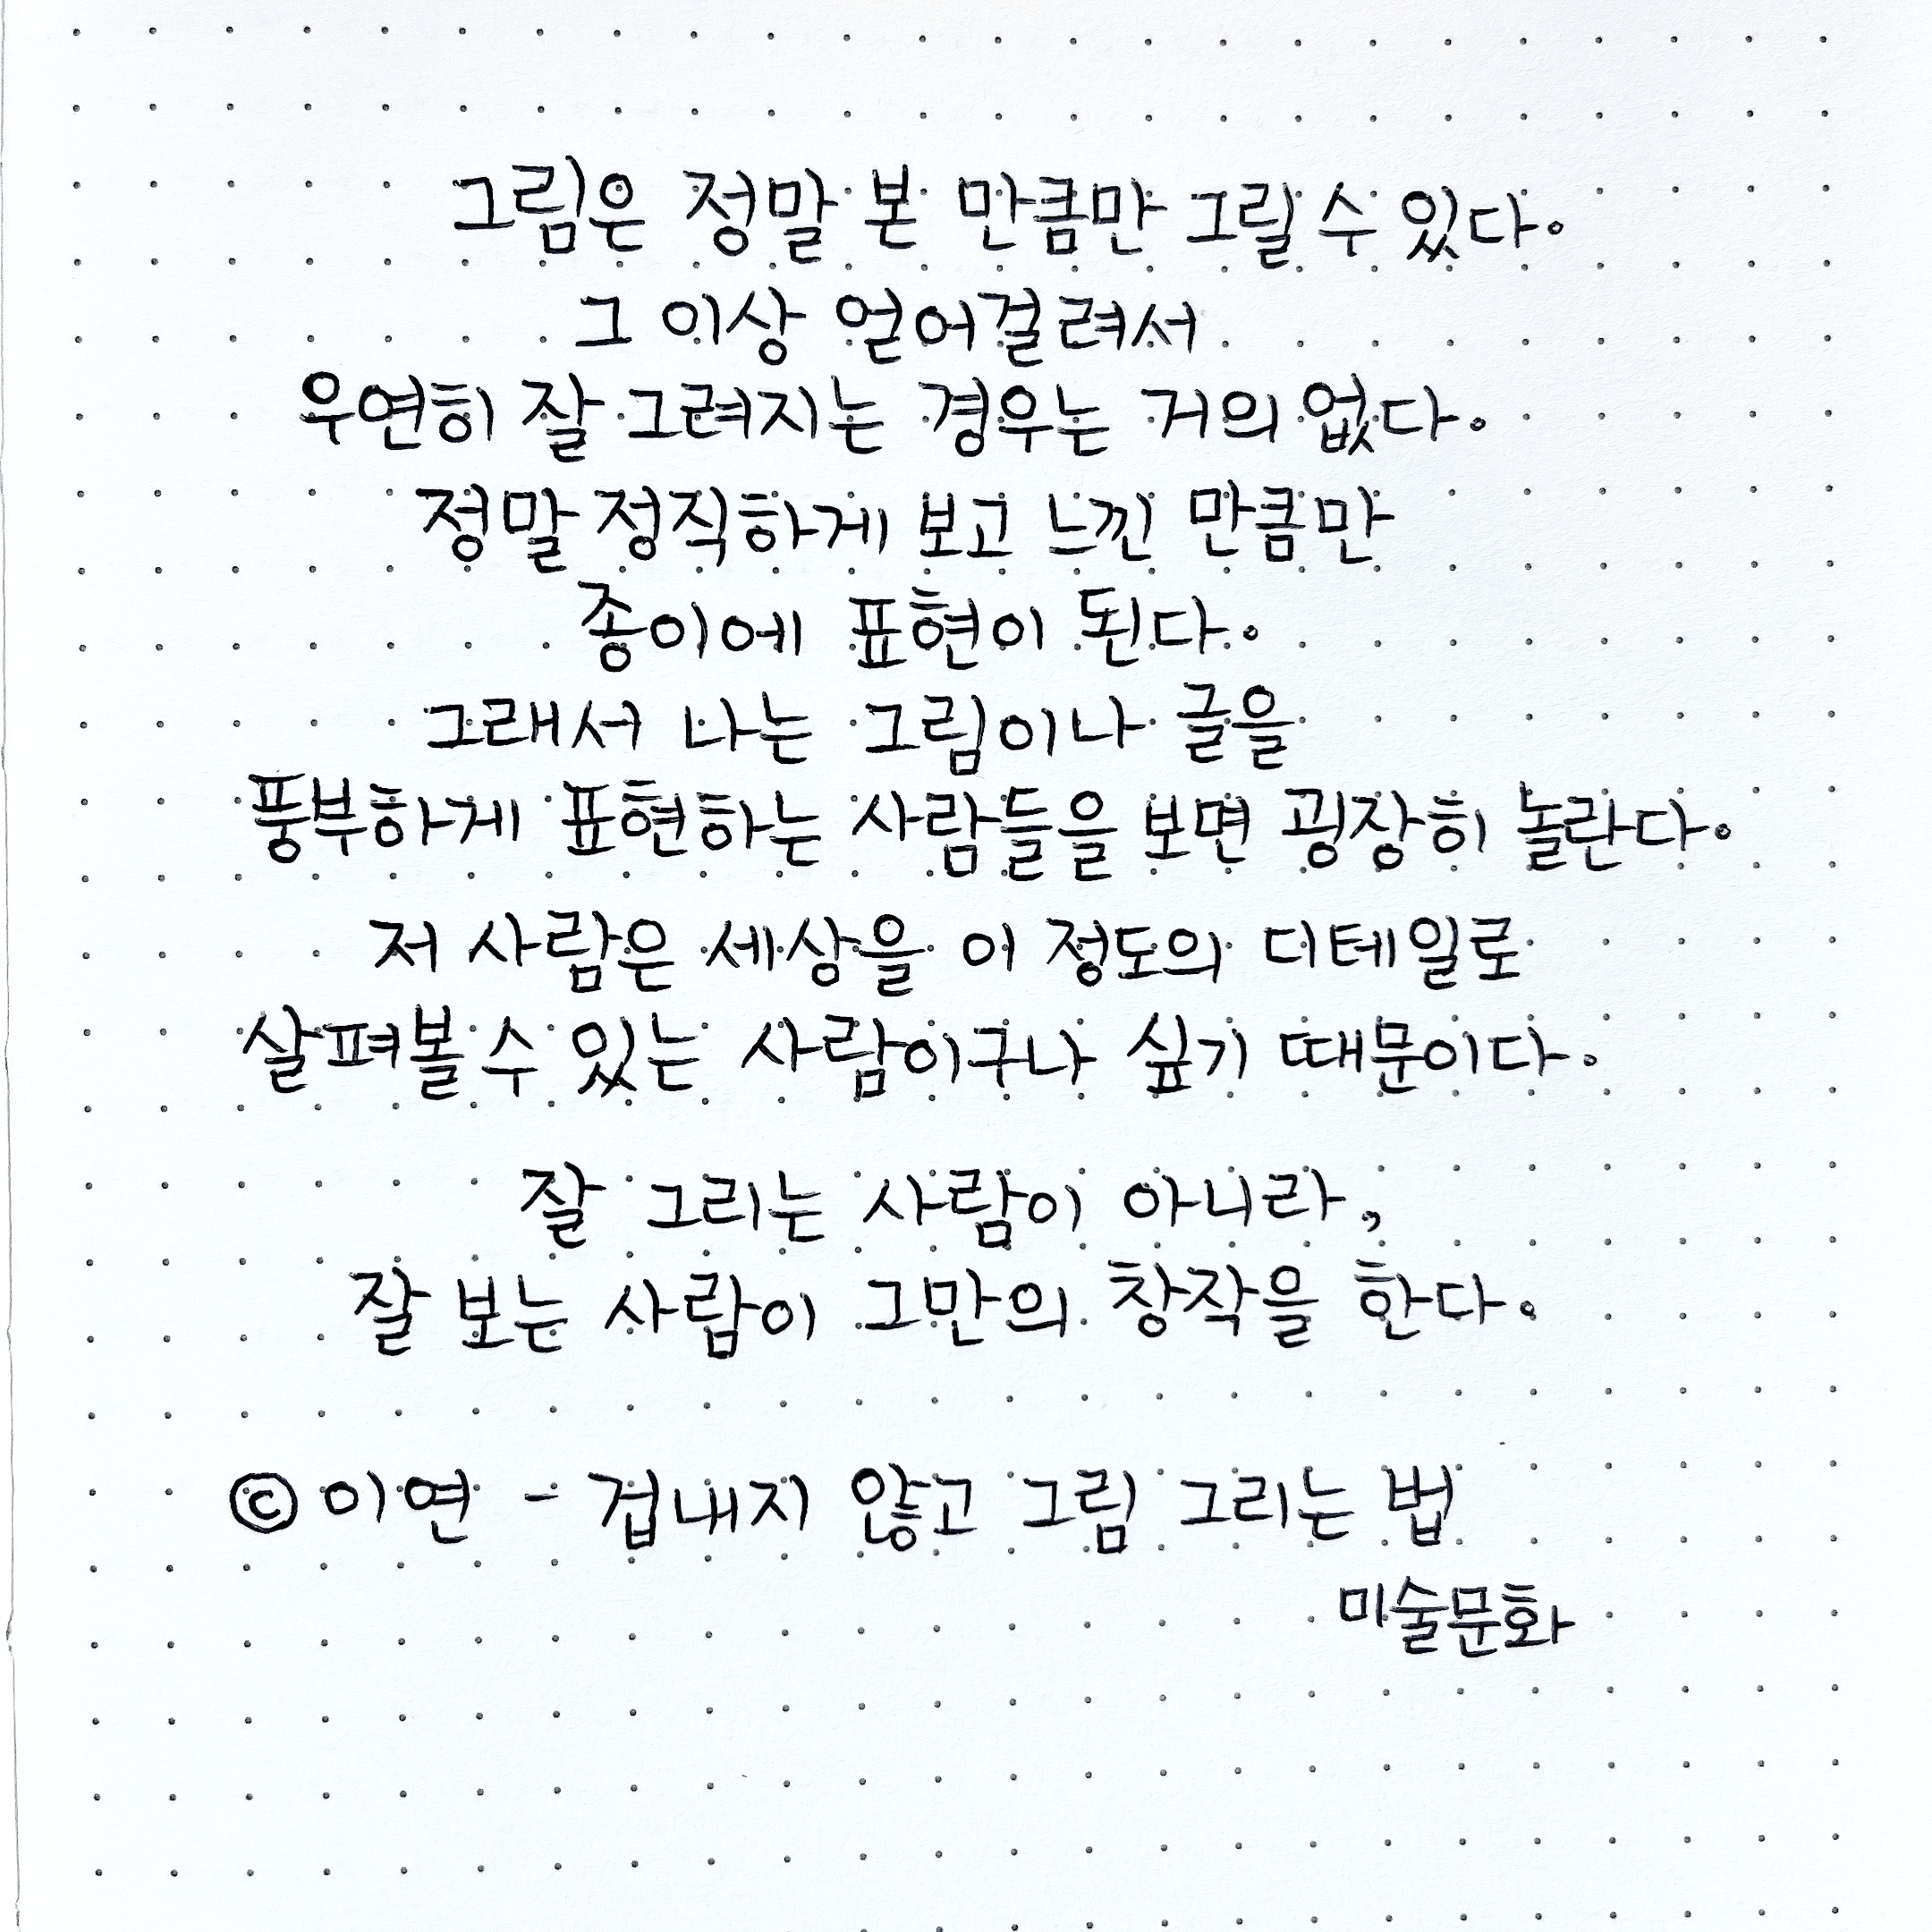 그림은 정말 본 만큼만 그릴 수 있다.
그 이상 얻어걸려서
우연히 잘 그려지는 경우는 거의 없다.
정말 정직하게 보고 느낀 만큼만
종이에 표현이 된다.
그래서 나는 그림이나 글을
풍부하게 표현하는 사람들을 보면 굉장히 놀란다.
저 사람은 세상을 이 정도의 디테일로
살펴볼 수 있는 사람이구나 싶기 때문이다.
잘 그리는 사람이 아니라,
잘 보는 사람이 그만의 창작을 한다.
© 이연 - 겁내지 않고 그림 그리는 법
미술문화